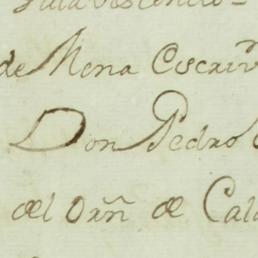 de Mena Escriv
Don Pedro
del Orñ de Cal